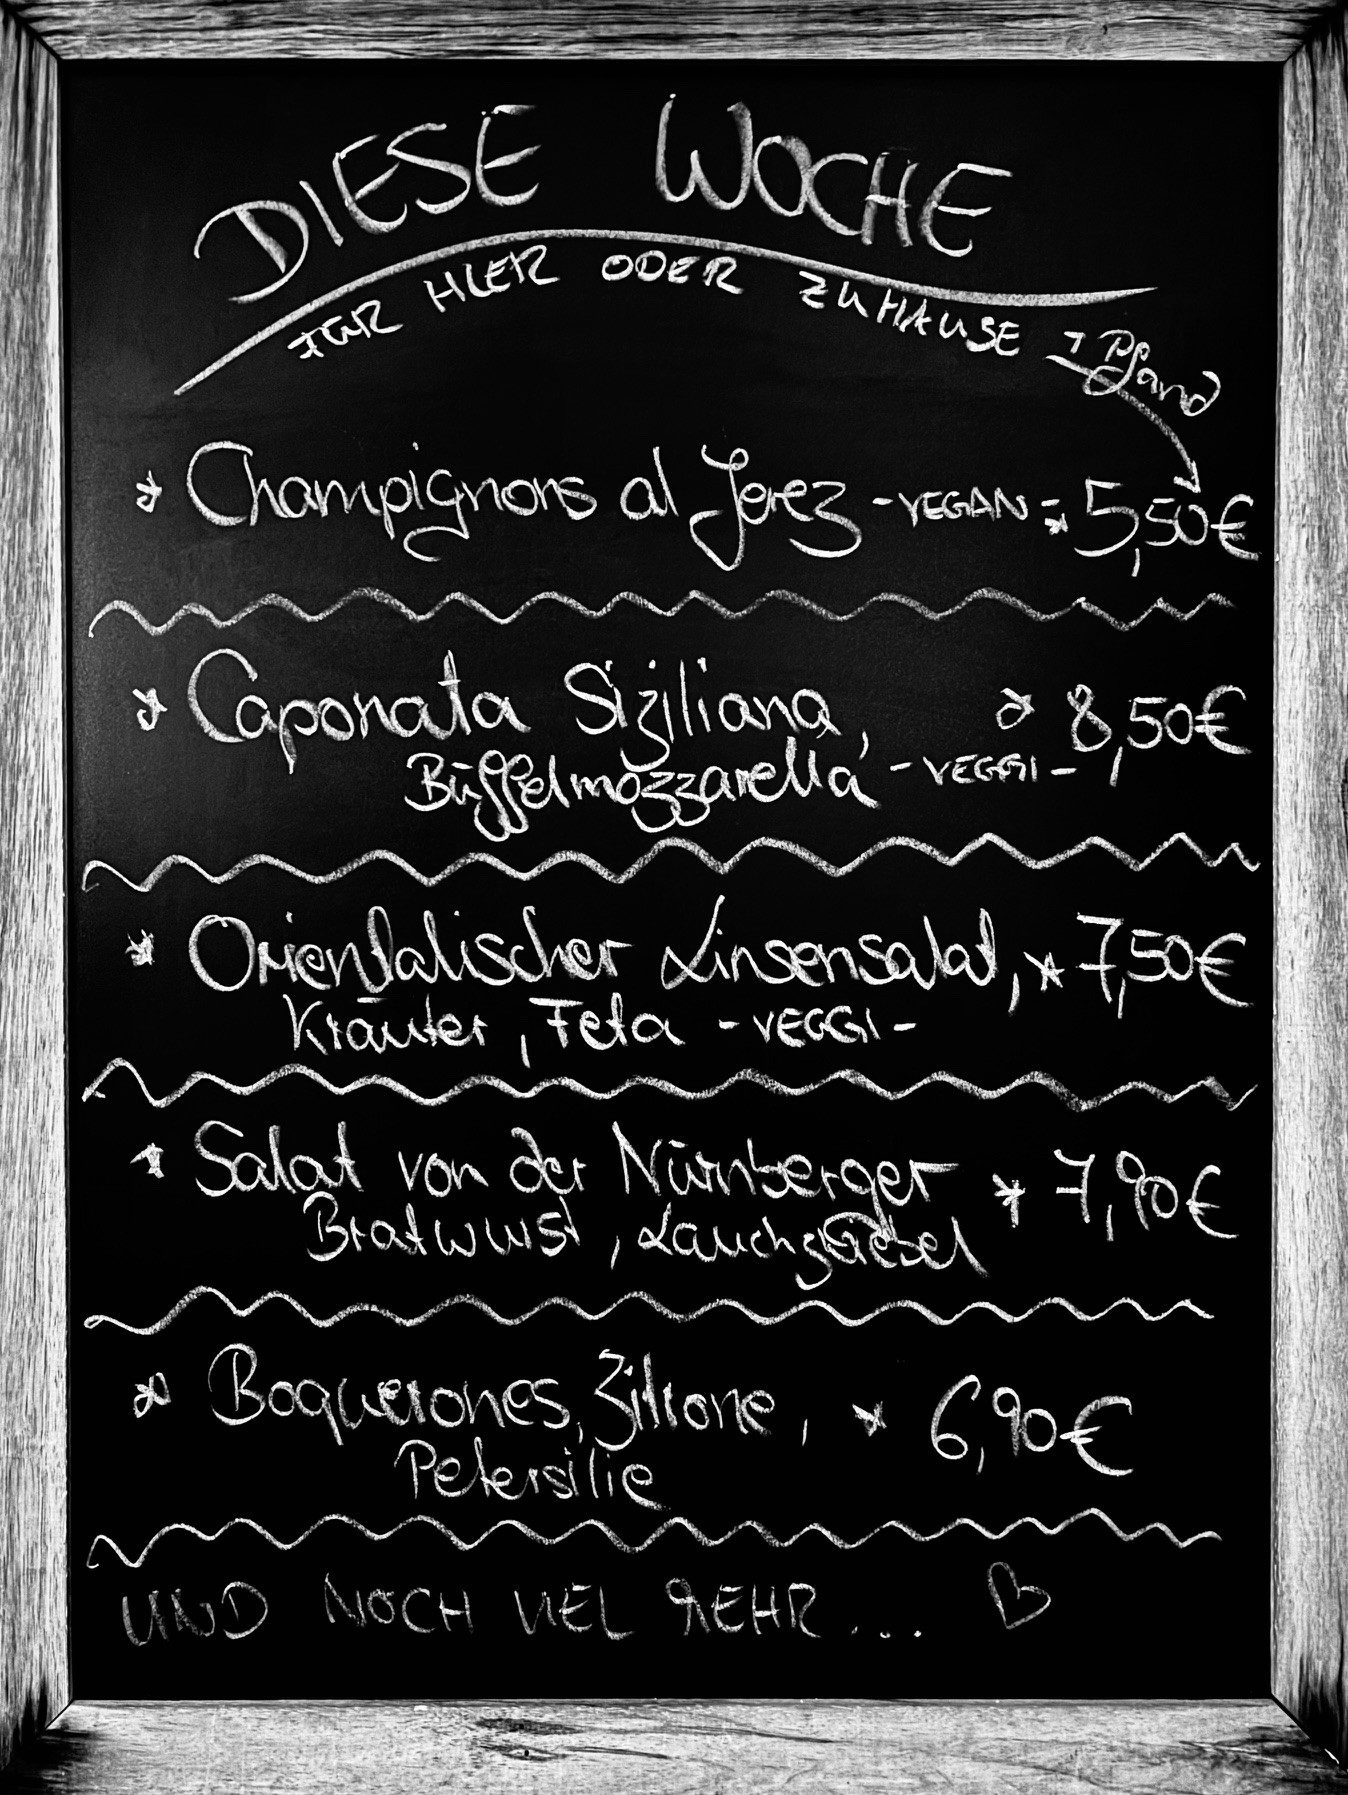 DIESE WOCHE
FÜR HIER ODER ZUHAUSE + Pfand
* Champignons al Jerez - VEGAN - * 5,50€
* Caponata Siziliana, * 8,50€
Büffelmozzarella - VEGGI -
* Orientalischer Linsensalat, * 7,50€
Kräuter, Feta - VEGGI -
* Salat von der Nürnberger * 7,90€
Bratwurst, Lauchzwiebel
* Boquerones, Zitrone, * 6,90€
Petersilie
UND NOCH VIEL MEHR... ♡